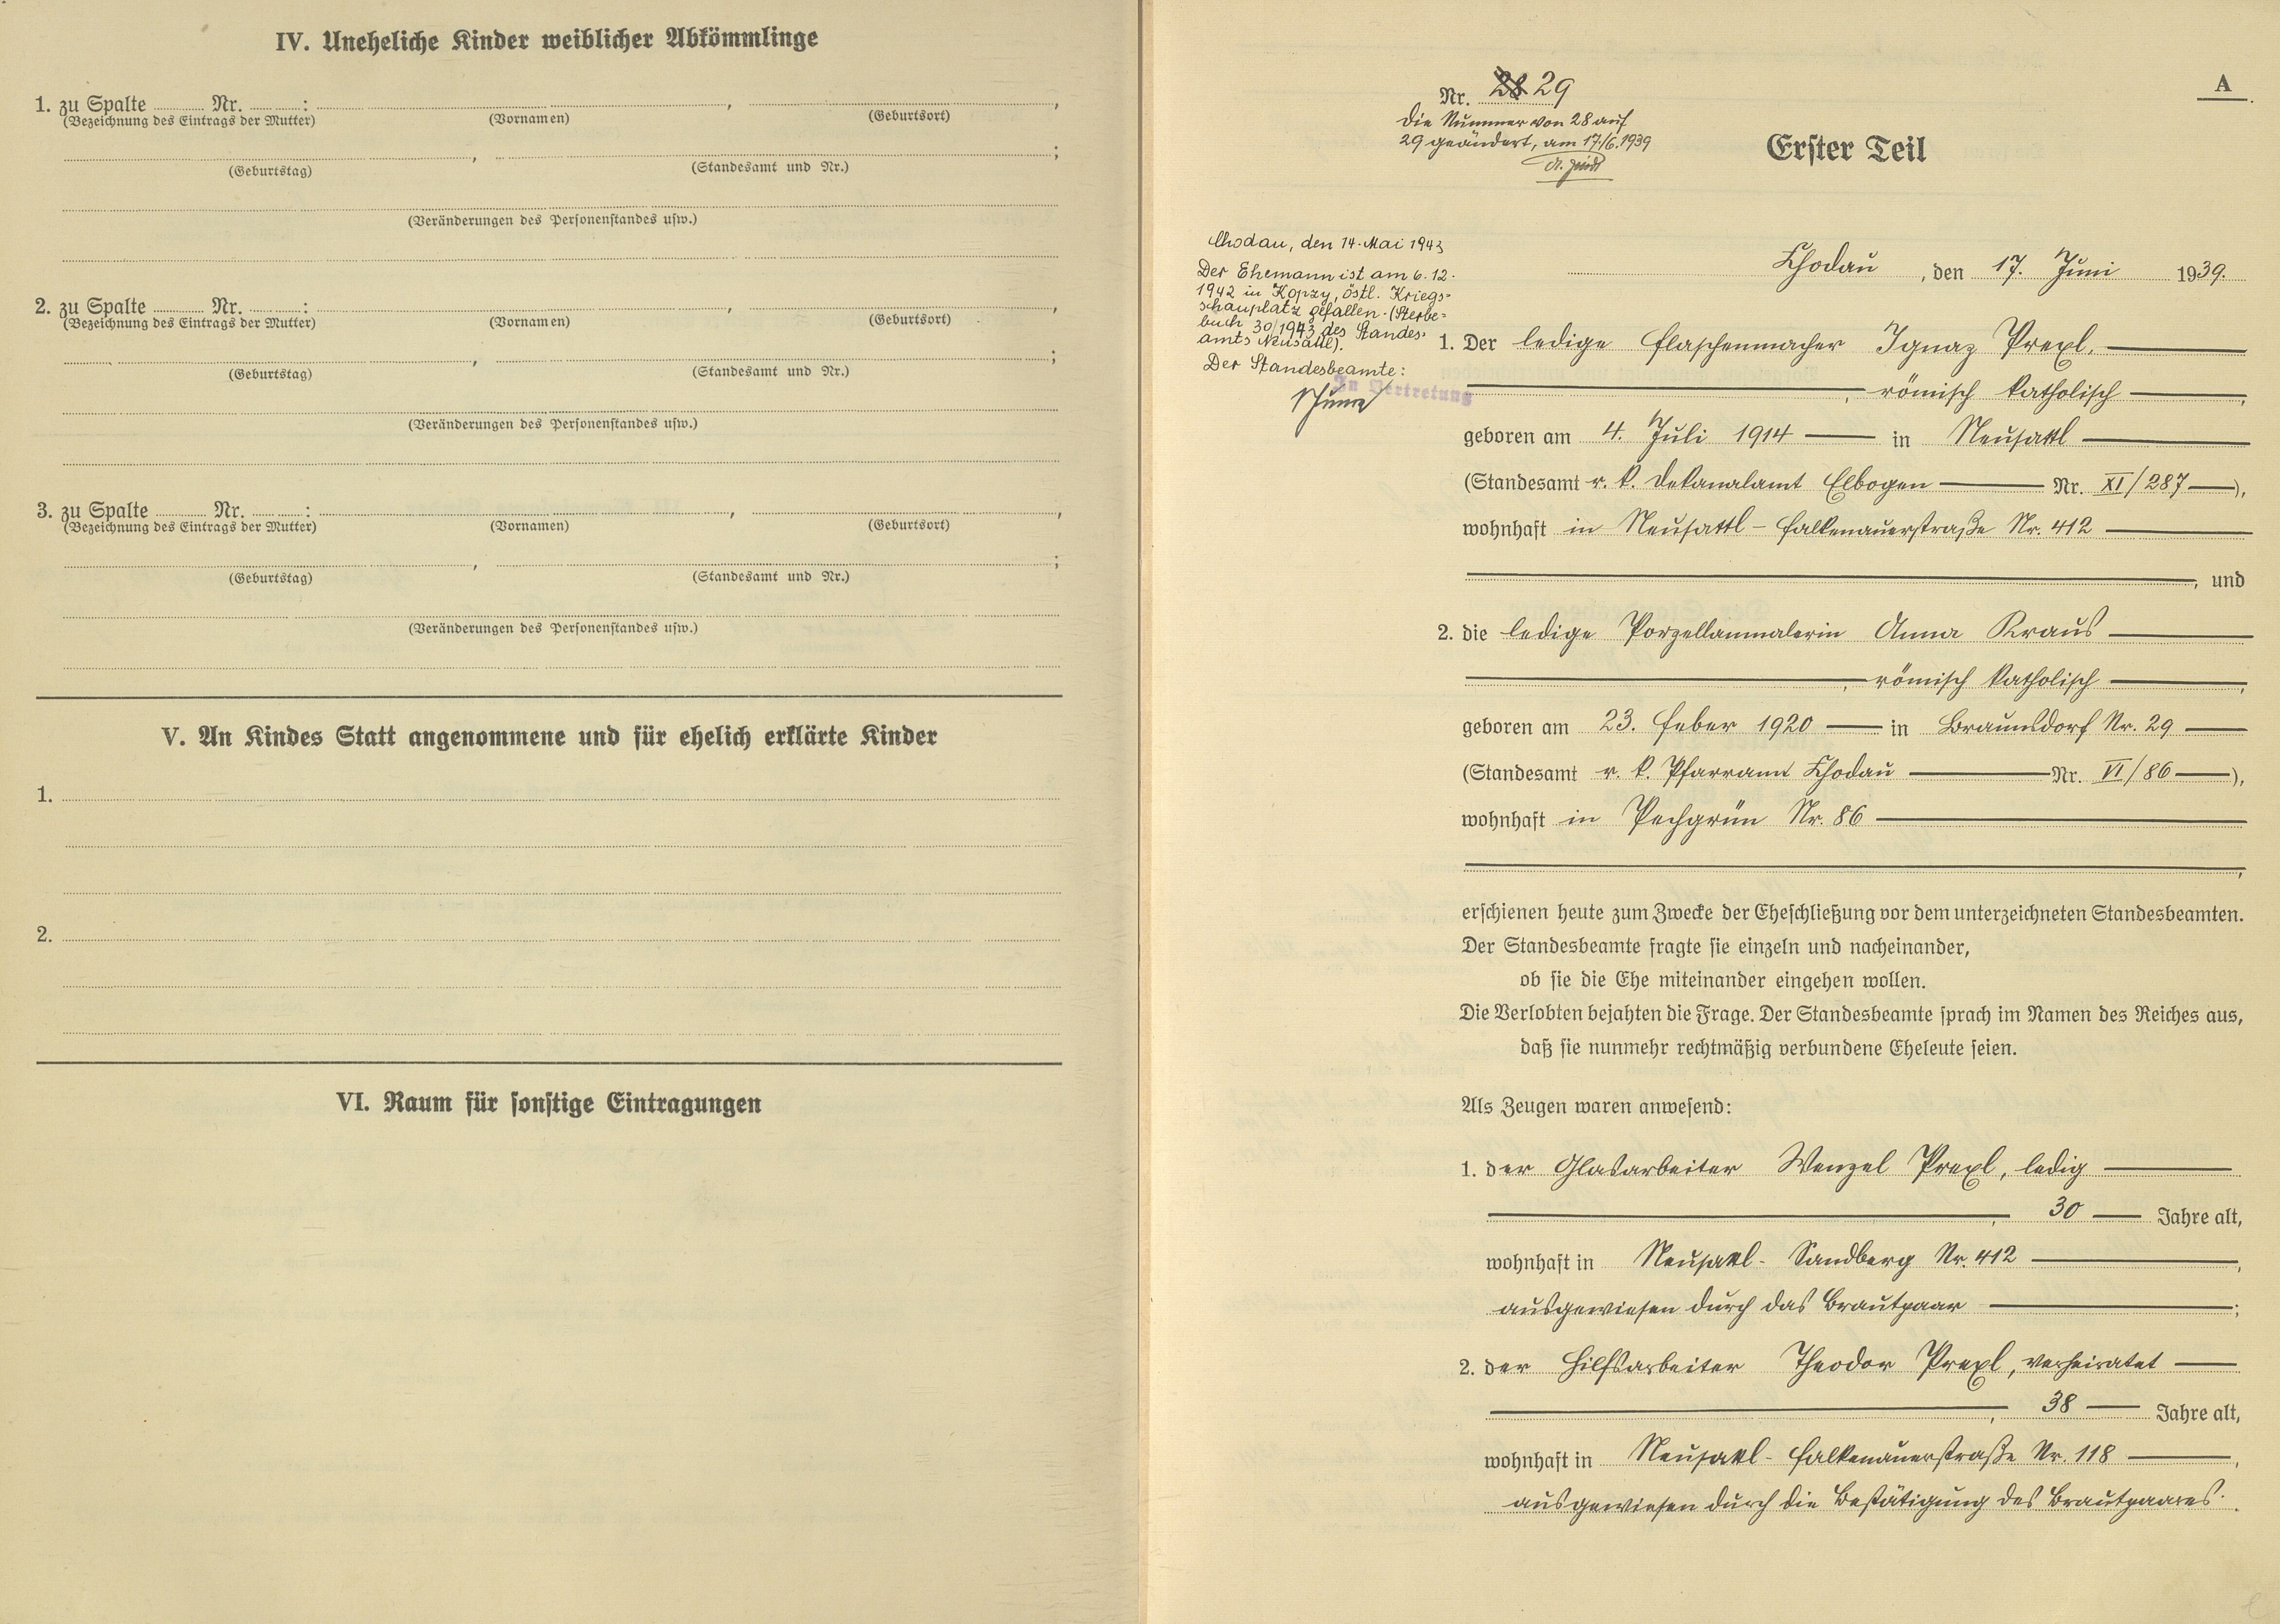 IV. Uneheliche Kinder weiblicher Abkömmlinge
1. zu Spalte Nr. : , ,
(Bezeichnung des Eintrags der Mutter) (Vornamen) (Geburtsort)
, ;
(Geburtstag) (Standesamt und Nr.)
(Veränderungen des Personenstandes usw.)
2. zu Spalte Nr. : , ,
(Bezeichnung des Eintrags der Mutter) (Vornamen) (Geburtsort)
, ;
(Geburtstag) (Standesamt und Nr.)
(Veränderungen des Personenstandes usw.)
3. zu Spalte Nr. : , ,
(Bezeichnung des Eintrags der Mutter) (Vornamen) (Geburtsort)
, ;
(Geburtstag) (Standesamt und Nr.)
(Veränderungen des Personenstandes usw.)
V. An Kindes Statt angenommene und für ehelich erklärte Kinder
1.
2.
VI. Raum für sonstige Eintragungen
A
Nr. 28 29
Die Nummer von 28 auf
29 geändert, am 17./6.1939
Erster Teil
Chodau, den 14. Mai 1943
Der Ehemann ist am 6.12.
1942 in Kopzy, östl. Kriegs-
schauplatz gefallen. (Sterbe-
buch 30/1943 des Standes-
amts Neusattl).
Der Standesbeamte:
In Vertretung
Chodau, den 17. Juni 1939.
1. Der ledige Flaschenmacher Ignaz Prexl,
, römisch katholisch ,
geboren am 4. Juli 1914 in Neusattl
(Standesamt r. k. Dekanalamt Elbogen Nr. XI/287 ),
wohnhaft in Neusattl - Falkenauerstraße Nr. 412
, und
2. die ledige Porzellanmalerin Anna Kraus
, römisch katholisch ,
geboren am 23. Feber 1920 in Braunsdorf Nr. 29
(Standesamt r. k. Pfarramt Chodau Nr. VI/86 ),
wohnhaft in Pechgrün Nr. 86
,
erschienen heute zum Zwecke der Eheschließung vor dem unterzeichneten Standesbeamten.
Der Standesbeamte fragte sie einzeln und nacheinander,
ob sie die Ehe miteinander eingehen wollen.
Die Verlobten bejahten die Frage. Der Standesbeamte sprach im Namen des Reiches aus,
daß sie nunmehr rechtmäßig verbundene Eheleute seien.
Als Zeugen waren anwesend:
1. der Glasarbeiter Wenzel Prexl, ledig
, 30 Jahre alt,
wohnhaft in Neusattl - Sandberg Nr. 412 ,
ausgewiesen durch das Brautpaar ;
2. der Hilfsarbeiter Theodor Prexl, verheiratet
, 38 Jahre alt,
wohnhaft in Neusattl - Falkenauerstraße Nr. 118 ,
ausgewiesen durch die Bestätigung des Brautpaares.